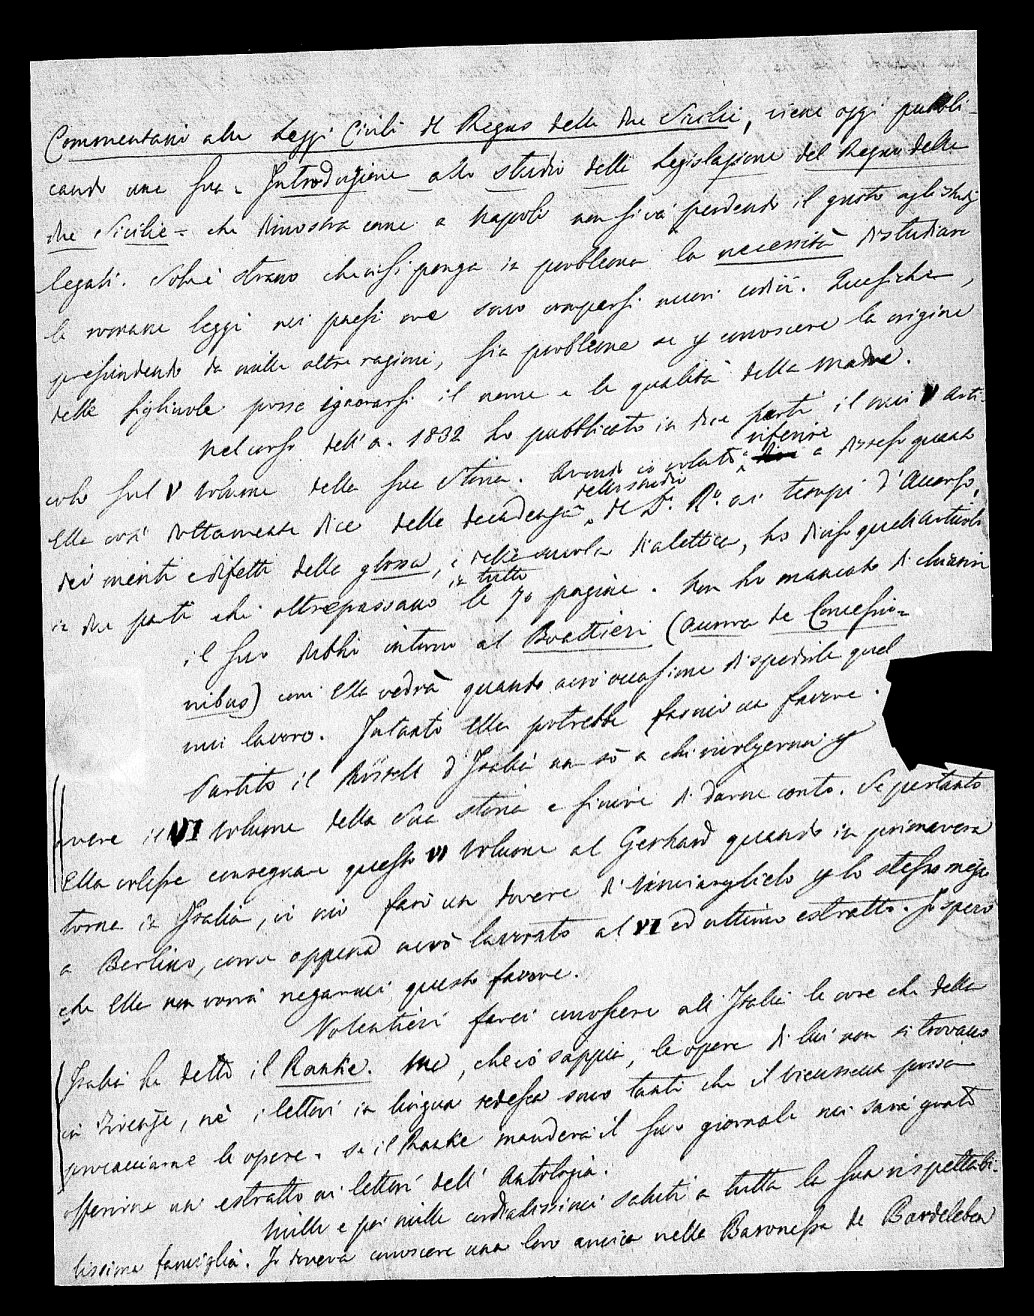 Commentario alle Leggi Civili del Regno delle due Sicilie, viene oggi pubbli-
cando una sua = Introduzione allo studio della Legislazione del Regno delle
due Sicilie = che dimostra come a Napoli non si va perdendo il gusto agli studj
legali. Solo è strano che ci si ponga in problema la necessità di studiare
le romane leggi nei paesi ove sono comparsi nuovi codici. Quasiché,
prescindendo da mille altre ragioni, sia problema se p conoscere la origine
delle figliuole possa ignorarsi il nome e la qualità della madre.
Nel corso dell'a. 1832 ho pubblicato in due parti il mio V arti-
colo sul V volume della sua Storia. Avendo io voluto riferire a disteso quanto
Ella così dottamente dice della decadenza dello studio del D.º R.º ai tempi d'Accorso,
dei meriti e difetti della glossa, e della scuola dialettica, ho diviso quell'articolo
in due parti che oltrepassano in tutto le 70 pagine. Non ho mancato di chiarir
il suo dubbio intorno al Boattieri (Aurora de Concessio=
nibus) come Ella vedrà quando avrò occasione di spedirle quel
mio lavoro. Intanto Ella potrebbe farmi un favore.
Partito il Russell d'Italia non so a chi rivolgermi p
avere il VI volume della sua storia e finire di darne conto. Se pertanto
Ella volesse consegnare questo VI volume al Gerhard quando in primavera
torna in Italia, io mi farei un dovere di rinviarglielo p lo stesso mezzo
a Berlino, come appena avrò lavorato al VI ed ultimo estratto. Io spero
che Ella non vorrà negarmi questo favore.
Volentieri farei conoscere all'Italia le cose che della
Italia ha detto il Ranke. Ma, che io sappia, le opere di lui non si trovano
in Firenze, nè i lettori in lingua tedesca sono tanti che il Vieusseux possa
procacciarne le opere. Se il Ranke manderà il suo giornale mi sarà grato
offerirne un estratto ai lettori dell'Antologia.
Mille e poi mille cordialissimi saluti a tutta la sua rispettabi-
lissima famiglia. Io doveva conoscere una loro amica nella Baronessa de Bardeleben